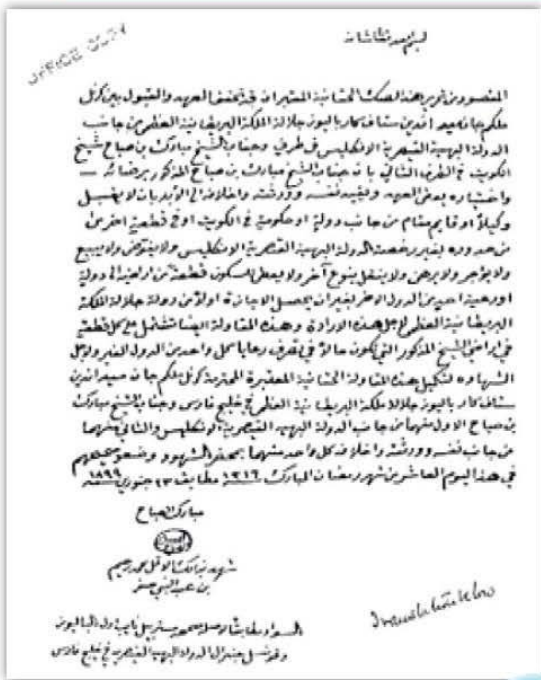 OFFICE COPY
المقصود من تحرير هذه الصك الحقانية المعتبر ان قد تحقق العهد والقبول بين كرنل
ملكم جان ميد انديـن ستاف كار باليوز جلالة الملكة البريطانية العظمى من جانب
الدولة البهية القيصرية الانكليس في طرف وجناب الشيخ مبارك بن صباح شيخ
الكويت في الطرف الثاني بان جناب الشيخ مبارك بن صباح المذكور برضائه
واختياره يعطى العهد ويقيد نفسه وورثته واخلافه الى الأبد بان لا يقبل
وكيلاً او قايم مقام من جانب دولة او حكومة في الكويت او في قطعة اخرى
من حدوده بغير رخصة الدولة البهية القيصرية الانكليس ولا يفوض ولا يبيع
ولا يؤجر ولا يرهن ولا ينقل بنوع آخر ولا يعطى للسكون قطعة من اراضيه الى دولة
او رعية احد من الدول الاخر بغير ان يحصل الاجازة اولاً من دولة جلالة الملكة
البريطانية العظمى لاجل هذه الارادة وهذه المقاولة ايضاً تشتمل على كل قطعة
من اراضي الشيخ المذكور التي تكون حالاً في تصرف رعايا كل واحد من الدول الغير ولاجل
الشهادة لتكميل هذه المقاولة الحقانية المعتبرة المحترمة كرنل ملكم جان ميد اندين
ستاف كار باليوز جلالة ملكة البريطانية العظمى في خليج فارس وجناب الشيخ مبارك
بن صباح الاول منهما من جانب الدولة البهية القيصرية الانكليس والثاني منهما
من جانب نفسه وورثته واخلافه كل واحد منهما بمحضر الشهود وضعوا صحيحهم
في هذا اليوم العاشر من شهر رمضان المبارك ١٣١٦ مطابق ٢٣ جنوري ١٨٩٩
مبارك الصباح
شهد بذلك الاقل محمد رحيم
بن عبد النبي صفر
وقونسل جنرال الدولة البهية القيصرية في خليج فارس